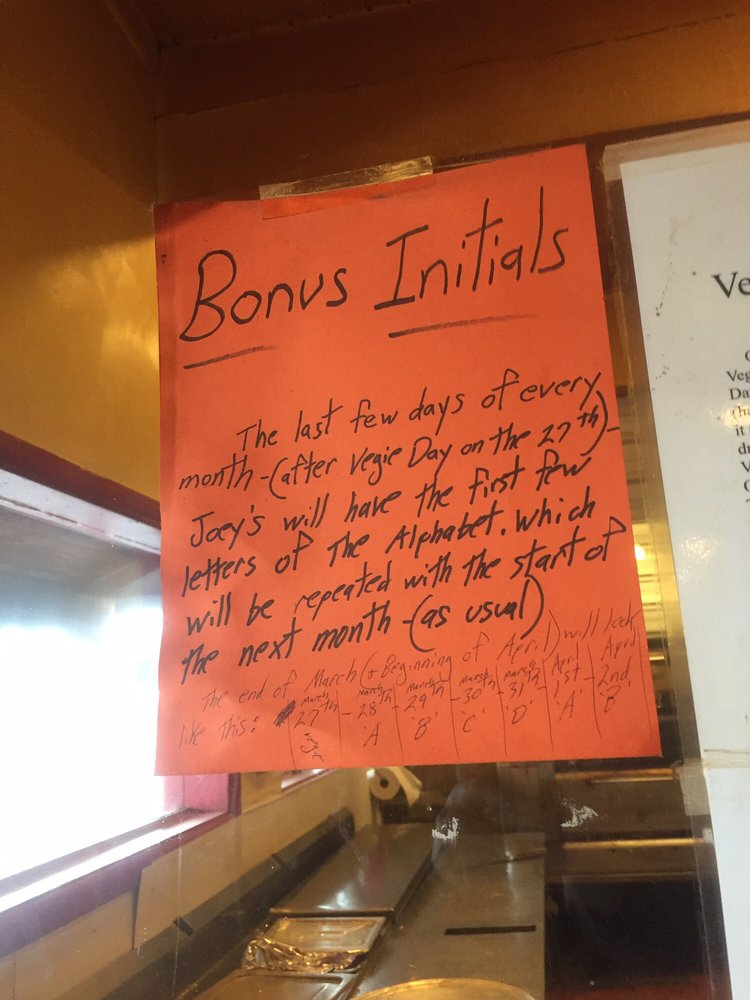 Bonus Initials
The last few days of every
month-(after Vegie Day on the 27th)-
Joey's will have the first few
letters of The Alphabet. which
will be repeated with the start of
the next month-(as usual)
The end of March (+ Beginning of April) will look
like this: March 27th vegie - March 28th 'A' - March 29th 'B' - March 30th 'C' - March 31th 'D' - April 1st 'A' - April 2nd 'B'
Ve
Veg
Da
(h
it
d
V